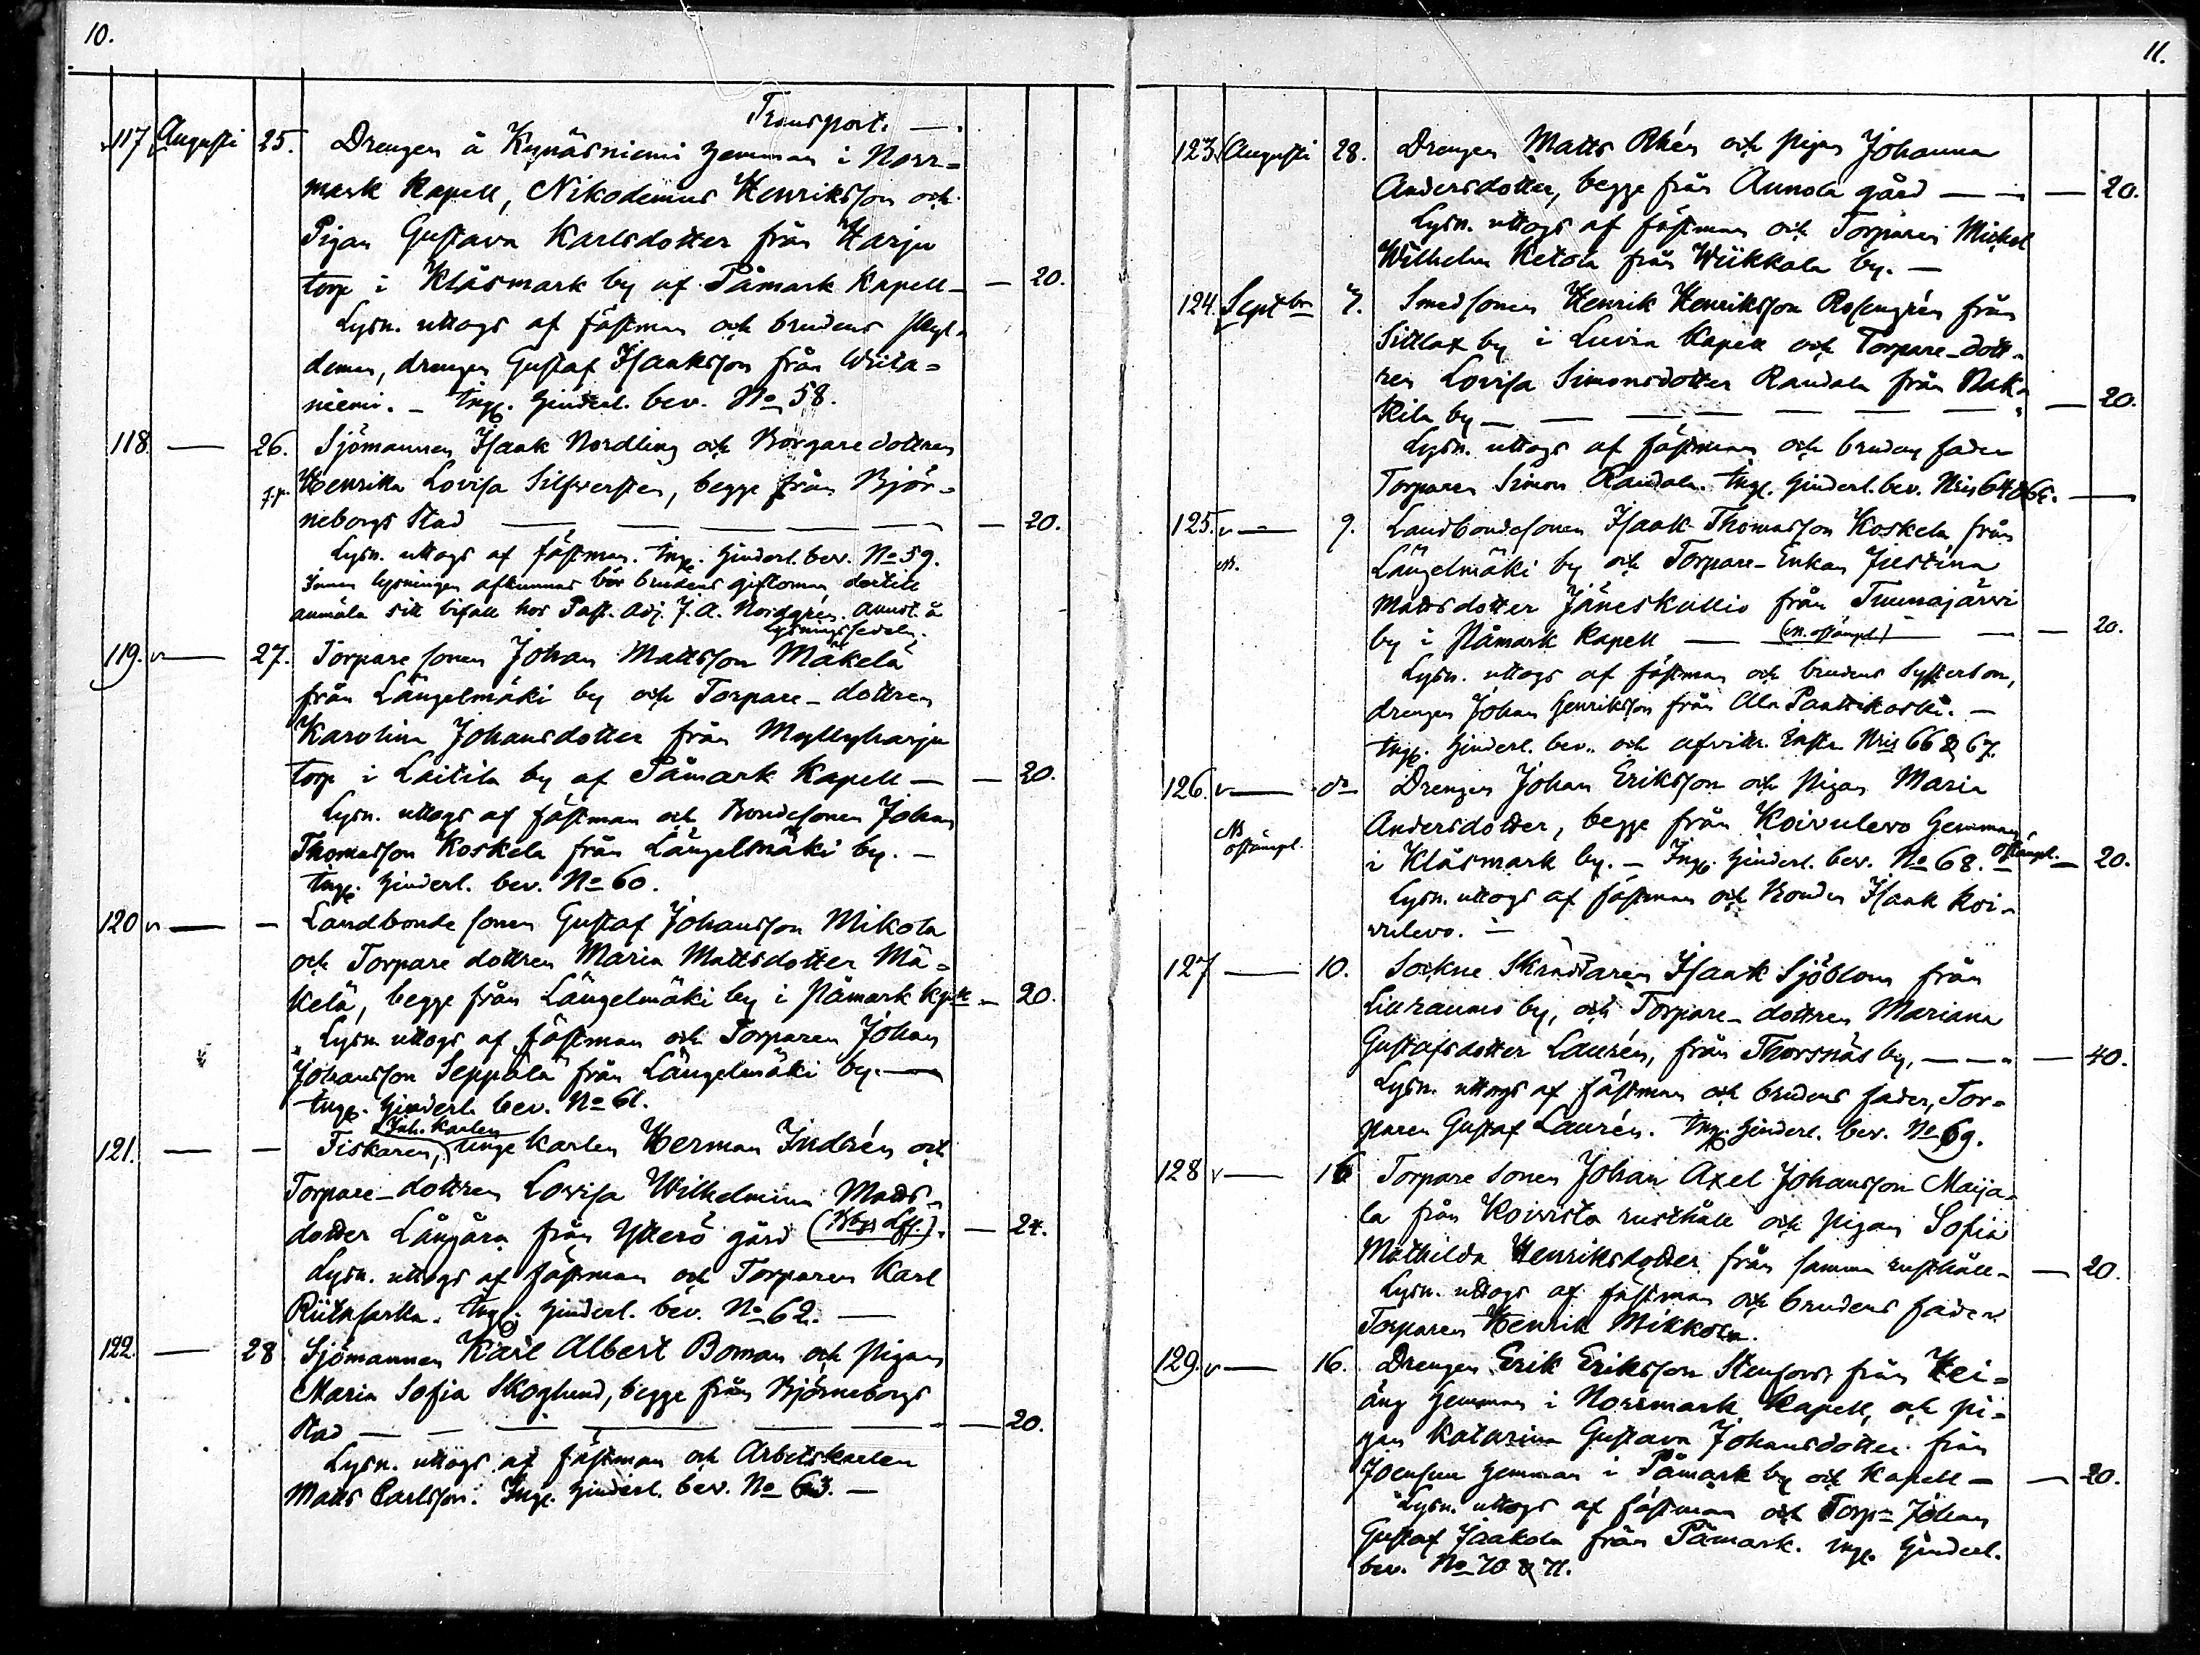 10.
Transport. —
117 Augusti 25. Drengen å Kynäsniemi hemman i Norr-
mark Kapell, Nikodemus Henriksson och
Pigan Gustava Karlsdotter från Harju
torp i Klåsmark by af Påmark Kapell — — 20.
Lysn. uttogs af fästman och brudens
drengen Gustaf Isaaksson från
niemi. — Ingl. hinderl. bev. No 58.
118 — 26. Sjömannen Isaak Nordling och Borgaredottren
Henrika Lovisa Silfversten, begge från Björ-
neborgs Stad — — — — — — 20.
Lysn. uttogs af fästman. Ingl. hinderl. bev. No 59.
Innan lysningen afkunnas bör brudens giftoman dertill
anmäla sitt bifall hos Past. Adj. J. A. Nordgrén. Annot. å
lysningssedeln.
119. v — 27. Torparesonen Johan Mattsson Mäkelä
från Längelmäki by och Torpare-dottren
Karolina Johansdotter från Myllyharju
torp i Laitila by af Påmark Kapell — — 20.
Lysn. uttogs af fästman och Bondesonen Johan
Thomasson Koskela från Längelmäki by. —
Ingl. hinderl. bev. No 60.
120 v — — Landbondesonen Gustaf Johansson Mikola
och Torparedottren Maria Mattsdotter Mä-
kelä, begge från Längelmäki by i Påmark Kpll — 20.
Lysn. uttogs af fästman och Torparen Johan
Johansson Seppälä från Längelmäki by. —
Ingl. hinderl. bev. No 61.
Inh. Karlen
121. — — Fiskaren, unge karlen Herman Indrén och
Torpare-dottren Lovisa Wilhelmina Matts-
dotter Långåra från Ytterö gård — 24.
Lysn. uttogs af fästman och Torparen Karl
Ingl. hinderl. bev. No 62. —
122. — 28 Sjömannen Karl Albert Boman och Pigan
Maria Sofia Skoglund, begge från Björneborgs
Stad — — — — — — 20.
Lysn. uttogs af fästman och Arbetskarlen
Matts Carlsson. Ingl. hinderl. bev. No 63. —
11.
123. Augusti 28. Drengen Matts Rhén och Pigan Johanna
Andersdotter, begge från Aunola gård — — — 20.
Lysn. uttogs af fästman och Torparen Mickel
Wilhelm Ketola från Wiikkala by. —
124. Septbr 7. Smedsonen Henrik Henriksson Rosengrén från
Sittlax by i Luvia Kapell och Torpare-dott-
ren Lovisa Simonsdotter Randala från Rak-
kila by — — — — — — — 20.
Lysn. uttogs af fästman och brudens fader
Torparen Simon Randala. Ingl. hinderl. bev. Nris 64 & 65. —
125. v — 9. Landbondesonen Isaak Thomasson Koskela från
Längelmäki by och Torpare-Enkan Justina
Mattsdotter Jäneskallio från Tuunajärvi
by i Påmark Kapell — (N. ostämpl.) — — 20.
Lysn. uttogs af fästman och brudens systerson,
drengen Johan Henriksson från Ala Panttikoski. —
Ingl. hinderl. bev. och afvittr. Nris 66 & 67.
126. v — do Drengen Johan Eriksson och Pigan Maria
Andersdotter, begge från Koivulevo hemman
Ns
ostämpl.
i Klåsmark by. — Ingl. hinderl. bev. No 68. — ostämpl. — 20.
Lysn. uttogs af fästman och Bonden Isaak Koi-
vulevo. —
127 — 10. Sockne Skräddaren Isaak Sjöblom från
Lillraumo by, och Torpare-dottren Mariana
Gustafsdotter Laurén, från Thorsnäs by, — — — 40.
Lysn. uttogs af fästman och brudens fader, Tor-
paren Gustaf Laurén. Ingl. hinderl. bev. No 69.
128 v — 16 Torparesonen Johan Axel Johansson Maija-
la från Koivisto rusthåll och Pigan Sofia
Mathilda Henriksdotter från samma rusthåll — — 20.
Lysn. uttogs af fästman och brudens fader
Torparen Henrik Mikkola.
129. v — 16. Drengen Erik Eriksson Stenfors från Hei-
äng hemman i Norrmark Kapell, och pi-
gan Katarina Gustava Johansdotter från
Joensuu hemman i Påmark by och Kapell — — 20.
Lysn. uttogs af fästman och Torp. Johan
Gustaf Jaakola från Påmark. Ingl. hinderl.
bev. No 70 & 71.